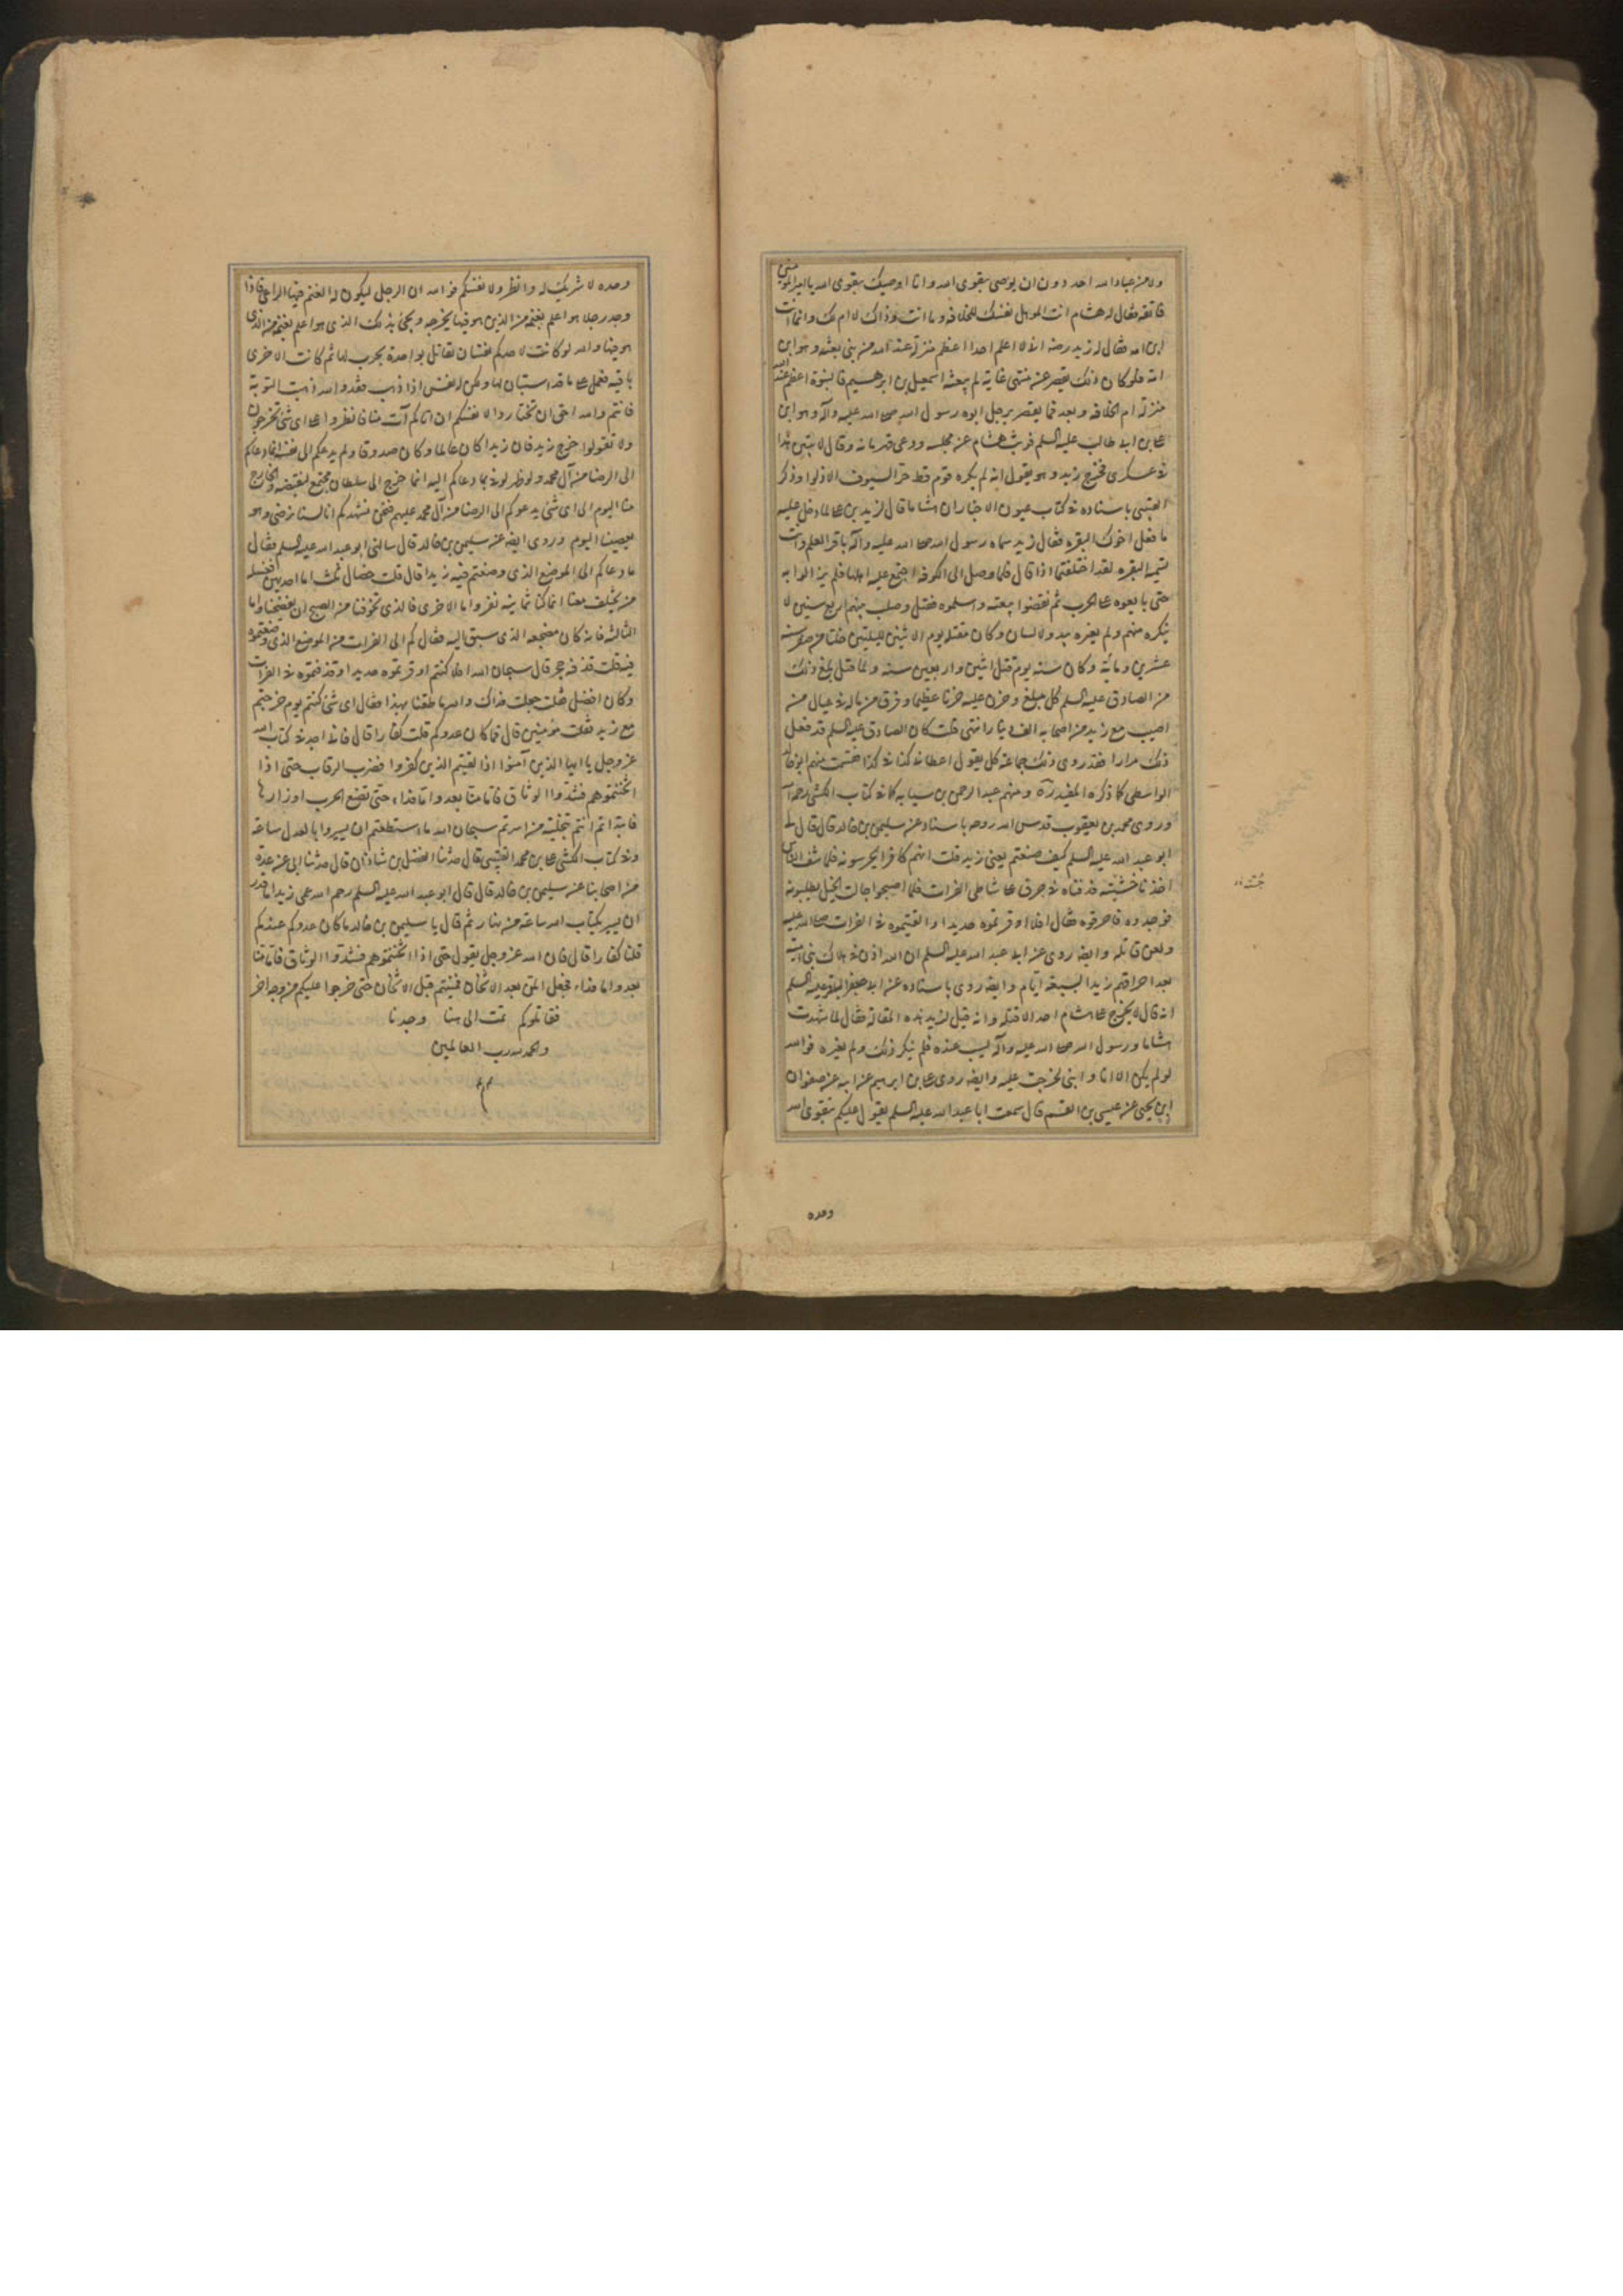 ولا من عباد الله احد دون ان يوصى بتقوى الله وانا اوصيك بتقوى الله يا امير المؤمنين
فاتقه فقال له هشام انت المؤهل نفسك للخلافة وما انت وذاك لا ام لك وانما انت
ابن امه فقال له زيد رضه انى لا اعلم احدا اعظم منزلة عند الله من نبى بعثه وهو ابن
امة فلو كان ذلك يقصر عن منتهى غاية لم يبعث اسمعيل بن ابرهيم فالنبوة اعظم عند الله
منزلة ام الخلافة وبعد فما يقصر برجل ابوه رسول الله صلى الله عليه وآله وهو ابن
على بن ابى طالب عليه السلم فوثب هشام عن مجلسه ودعى قهرمانه وقال لا يبيتن هذا
فى عسكرى فخرج زيد وهو يقول انه لم يكره قوم قط حر السيوف الا ذلوا وذكر
القتيبى باسناده فى كتاب عيون الاخبار ان هشاما قال لزيد بن على لما دخل عليه
ما فعل اخوك البقرة فقال زيد سماه رسول الله صلى الله عليه وآله باقر العلم وانت
تسميه البقرة لقد اختلفتما اذا قال فلما وصل الى الكوفة اجتمع عليه اهلها فلم يزالوا به
حتى بايعوه على الحرب ثم نقضوا بيعته واسلموه فقتل وصلب بينهم اربع سنين لا
ينكره منهم ولم يغيره بيد ولا لسان وكان مقتله يوم الاثنين لليلتين خلتا من صفر سنة
عشرين ومائة وكان سنه يوم قتل اثنين واربعين سنة ولما قتل بلغ ذلك
من الصادق عليه السلم كل مبلغ وحزن عليه حزنا عظيما وفرق من ماله فى عيال من
اصيب مع زيد من اصحابه الف دينار انتهى قلت كان الصادق عليه السلم قد فعل
ذلك مرارا فقد روى ذلك جماعة كل يقول اعطانى كذا فى كذا قسمت منهم ابو خالد
الواسطى كما ذكره المفيد ره ومنهم عبد الرحمن بن سيابه كما فى كتاب الكشى رحمه الله
وروى محمد بن يعقوب قدس الله روحه باسناد عن سليمن بن خالد قال قال لى
ابو عبد الله عليه السلم كيف صنعتم بعمى زيد قلت انهم كانوا يحرسونه فلما شف الناس
اخذنا خشبته فدفناه فى جرف على شاطى الفرات فلما اصبحوا جالت الخيل يطلبونه
فوجدوه فاحرقوه فقال افلا اوقرتموه حديدا والقيتموه فى الفرات صلى الله عليه
ولعن قاتله وايضه روى عن ابى عبد الله عليه السلم ان الله اذن فى هلاك بنى امية
بعد احراقهم زيدا بسبعة ايام وايضه روى باسناده عن ابى جعفر الباقر عليه السلم
انه قال لا يخرج على هشام احد الا قتله وانه قيل لزيد هذه المقالة فقال لما شهدت
هشاما ورسول الله صلى الله عليه وآله يسب عنده فلم ينكر ذلك ولم يغيره فوالله
لو لم يكن الا انا وابنى لخرجت عليه وايضه روى على بن ابرهيم عن ابيه عن صفوان
ابن يحيى عن عيسى بن القسم قال سمعت ابا عبد الله عليه السلم يقول عليكم بتقوى الله
وحده
وحده لا شريك له وانظروا لانفسكم فوالله ان الرجل ليكون له الغنم فيها الراعى فاذا
وجد رجلا هو اعلم بغنمه من الذى هو فيها يخرجه ويجئ بذلك الذى هو اعلم بغنمه من الذى
هو فيها والله لو كانت لاحدكم نفسان يقاتل بواحدة يجرب بها ثم كانت الاخرى
باقيه فعمل على ما قد استبان لها ولكن له نفس اذا ذهبت فقد والله ذهبت التوبة
فانتم والله احق ان تختاروا لانفسكم ان اتاكم آت منا فانظروا على اى شئ تخرجون
ولا تقولوا خرج زيد فان زيدا كان عالما وكان صدوقا ولم يدعكم الى نفسه انما دعاكم
الى الرضا من آل محمد ولو ظهر لوفى بما دعاكم اليه انما خرج الى سلطان مجتمع لينقضه والخارج
منا اليوم الى اى شئ يدعوكم الى الرضا من آل محمد عليهم فنحن نشهدكم انا لسنا نرضى وهو
يعصينا اليوم وروى ايضه عن سليمن بن خالد قال سالنى ابو عبد الله عليه السلم فقال
ما دعاكم الى الموضع الذى وضعتم فيه زيدا قال قلت خصال ثلث اما احديهن فلقلة
من تخلف معنا انما كنا ثمانية نفر واما الاخرى فالذى تخوفنا من الصبح ان يفضحنا واما
الثالثه فانه كان مضجعه الذى سبق اليه فقال كم الى الفرات من الموضع الذى وضعتموه
فيه قلت قذفة حجر قال سبحان الله افلا كنتم اوقرتموه حديدا وقذفتموه فى الفرات
وكان افضل قلت جعلت فداك والله ما طقنا بهذا فقال اى شئ كنتم يوم خرجتم
مع زيد فقلت مؤمنين قال فما كان عدوكم قلت كفارا قال فانى اجد فى كتاب الله
عز وجل يا ايها الذين آمنوا اذا لقيتم الذين كفروا فضرب الرقاب حتى اذا
اثخنتموهم فشدوا الوثاق فاما منا بعد واما فداء حتى تضع الحرب اوزارها
فابتداتم انتم بتخلية من اسرتم سبحان الله ما استطعتم ان تسيروا بالعدل ساعة
وفى كتاب الكشى على بن محمد القتيبى قال حدثنا الفضل بن شاذان قال حدثنا ابى عن عدة
من اصحابنا عن سليمن بن خالد قال قال ابو عبد الله عليه السلم رحم الله عمى زيدا ما قدر
ان يسير بكتاب الله ساعة من نهار ثم قال يا سليمن بن خالد ما كان عدوكم عندكم
قلنا كفارا قال فان الله عز وجل يقول حتى اذا اثخنتموهم فشدوا الوثاق فاما منا
بعد واما فداء فجعل المن بعد الاثخان فمننتم قبل الاثخان حتى خرجوا عليكم من وجه آخر
فقاتلوكم تمت الى هنا وجدنا
والحمد لله رب العالمين